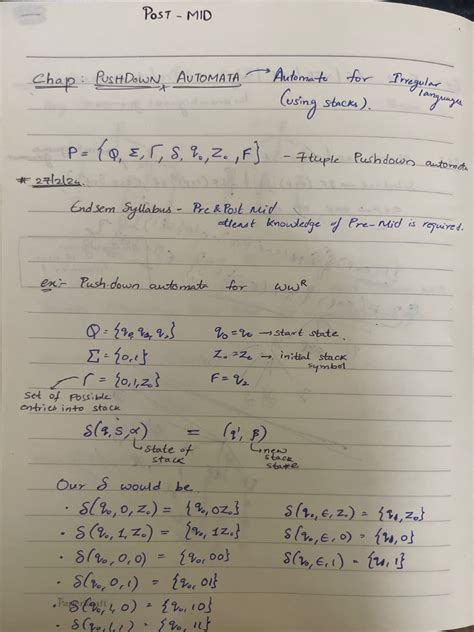 POST - MID
Chap: PUSHDOWN AUTOMATA → Automata for Irregular languages
(using stacks).
P = {Q, Σ, Γ, δ, q₀, Z₀, F} - 7 tuple Pushdown automata
# 27/2/24
Endsem Syllabus - Pre & Post Mid
atleast knowledge of Pre-Mid is required.
ex:- Pushdown automata for wwᴿ
Q = {q₀, q₁, q₂} q₀ = q₀ → start state.
Σ = {0,1} Z₀ = Z₀ → initial stack symbol
Γ = {0,1,Z₀} F = q₂
set of possible entries into stack
δ(q, S, α) = (q', β)
state of stack
new stack state
Our δ would be
· δ(q₀, 0, Z₀) = {q₀, 0Z₀} δ(q₀, ε, Z₀) = {q₁, Z₀}
· δ(q₀, 1, Z₀) = {q₀, 1Z₀} δ(q₀, ε, 0) = {q₁, 0}
· δ(q₀, 0, 0) = {q₀, 00} δ(q₀, ε, 1) = {q₁, 1}
· δ(q₀, 0, 1) = {q₀, 01}
· δ(q₀, 1, 0) = {q₀, 10}
· δ(q₀, 1, 1) = {q₀, 11}